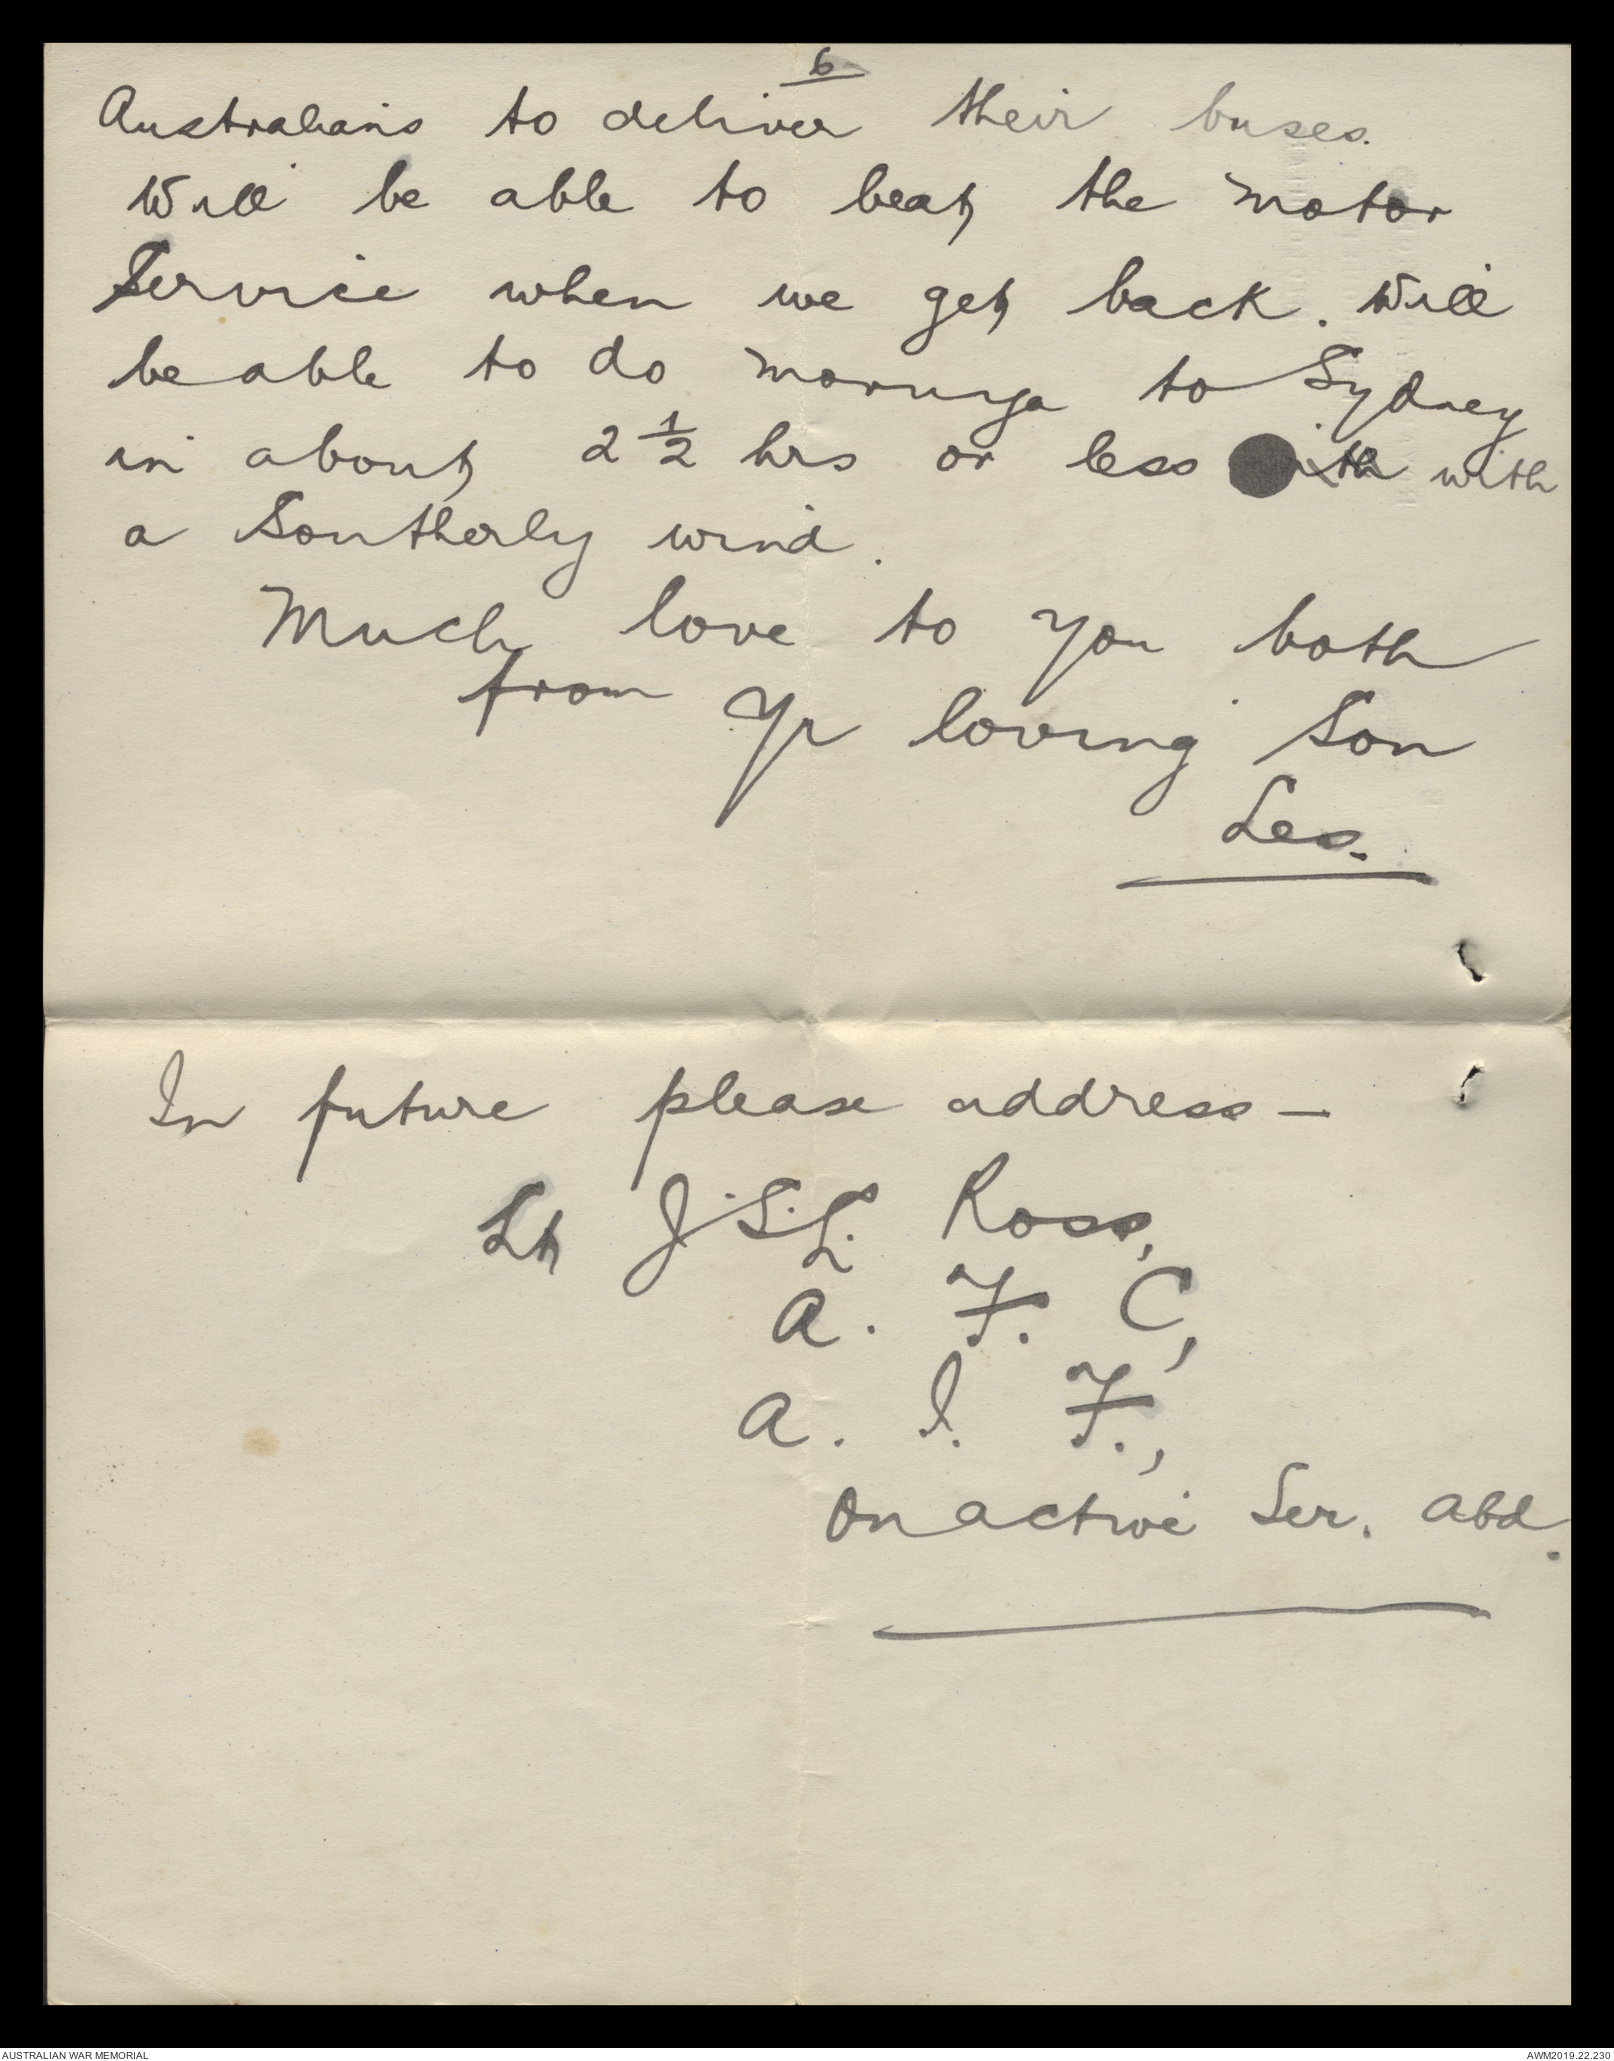 6
Australians to deliver their buses.
Will be able to beat the motor
Service when we get back. Will
be able to do Moruya to Sydney
in about 2 ½ hrs or less with with
a Southerly wind.
Much love to you both
from Yr loving Son
Les.
In future please address —
Lt J.S.L. Ross,
A. F. C,
A. I. F.,
On active Ser. Abd.
AUSTRALIAN WAR MEMORIAL
AWM2019.22.230